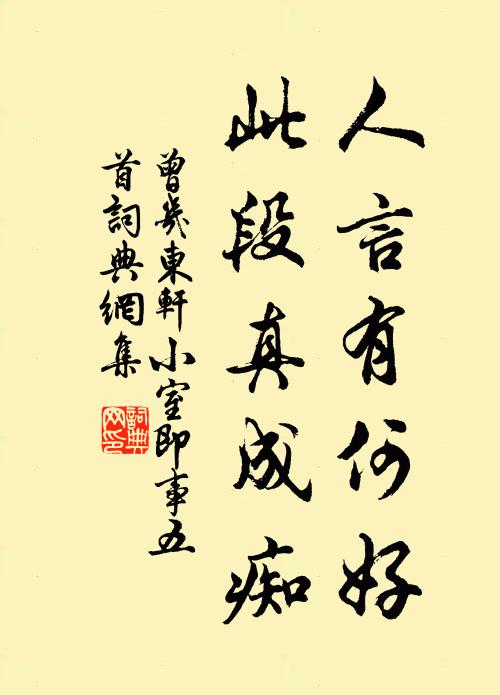 人言有何好
此段真成痴
曾几東軒小室即事五
首詞典網集
詞典网印